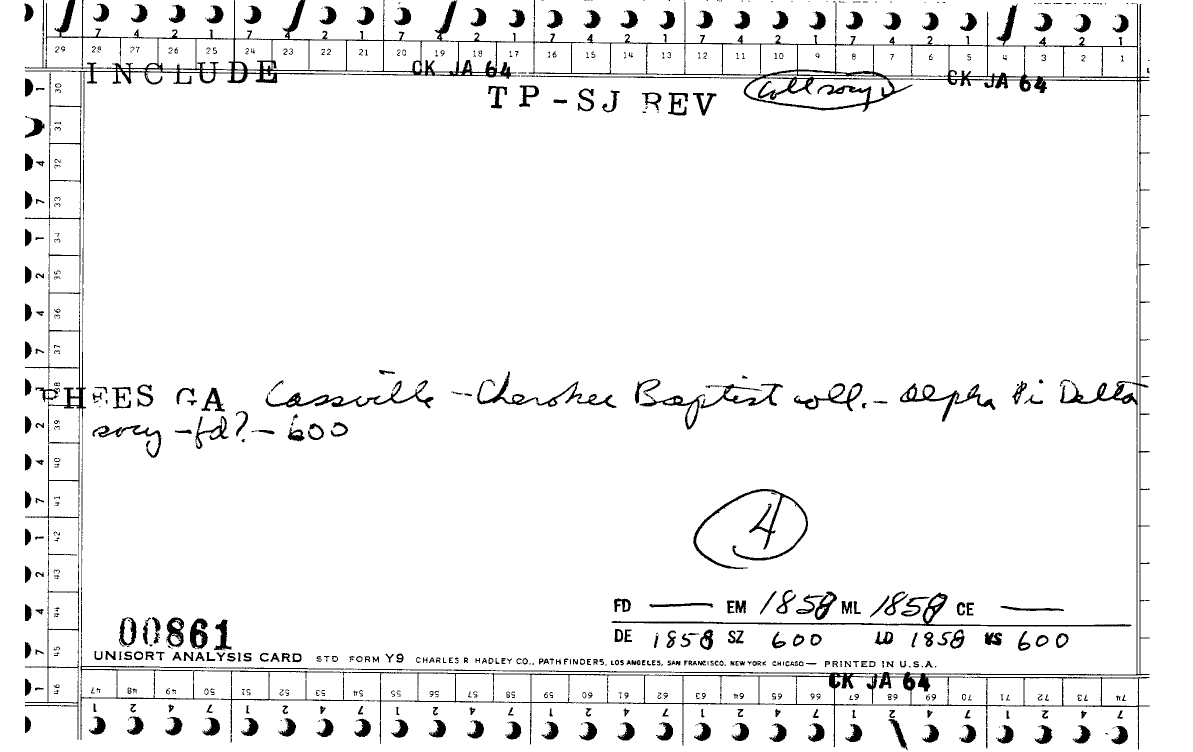 7 4 2 1 7 4 2 1 7 4 2 1 7 4 2 1 7 4 2 1 7 4 2 1 7 4 2 1
29 28 27 26 25 24 23 22 21 20 19 18 17 16 15 14 13 12 11 10 9 8 7 6 5 4 3 2 1
INCLUDE CK JA 64 CK JA 64
TP-SJ REV Coll socy
1 30
31
4 32
7 33
1 34
2 35
4 36
7 37
38
PHEES GA Cassville - Cherokee Baptist coll. - Alpha Pi Delta
2 39
socy - fd? - 600
4 40
7 41
1 42
4
2 43
4 44
FD — EM 1858 ML 1858 CE —
00861 DE 1858 SZ 600 LD 1858 VS 600
7 45
UNISORT ANALYSIS CARD STD FORM Y9 CHARLES R HADLEY CO., PATHFINDERS, LOS ANGELES, SAN FRANCISCO, NEW YORK CHICAGO — PRINTED IN U.S.A.
CK JA 64
1 46
47 48 49 50 51 52 53 54 55 56 57 58 59 60 61 62 63 64 65 66 67 68 69 70 71 72 73 74
1 2 4 7 1 2 4 7 1 2 4 7 1 2 4 7 1 2 4 7 1 2 4 7 1 2 4 7